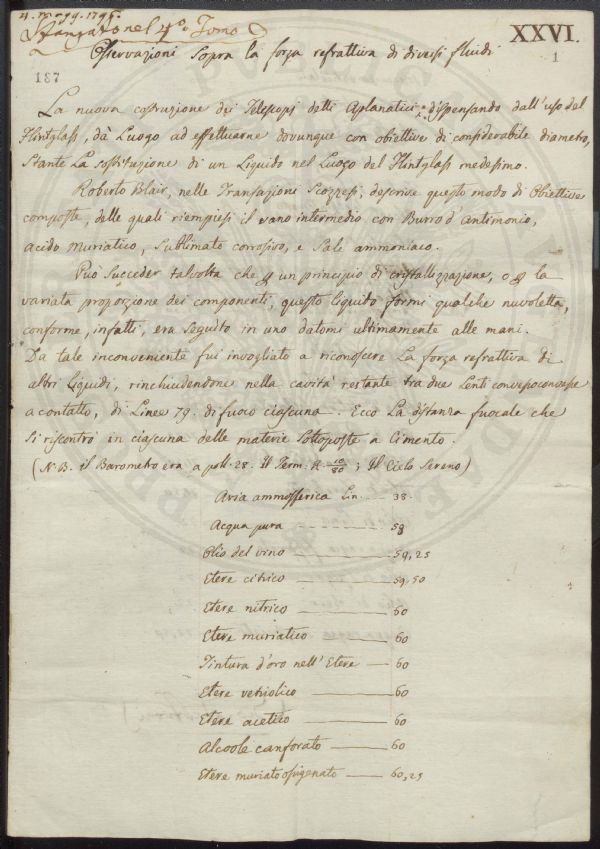 4. magg. 1795.
Stampato nel 4.º Tomo
XXVI.
Osservazioni sopra la forza refrattiva di diversi fluidi
1
187
La nuova costruzione dei Telescopj detti Aplanatici dispensando dall'uso del
Flintglass, dà Luogo ad effettuarne dovunque con obiettive di considerabile diametro,
stante La sostituzione di un Liquido nel Luogo del Flintglass medesimo.
Roberto Blair, nelle Transazioni Scozzesi, descrive questo modo di Obiettive
composte, delle quali riempiesi il vano intermedio con Burro d'Antimonio,
acido muriatico, Sublimato corrosivo, e Sale ammoniaco.
Può Succeder talvolta che p un principio di cristallizzazione, o p la
variata proporzione dei componenti, questo liquido formi qualche nuvoletta,
conforme, infatti, era seguito in uno datomi ultimamente alle mani.
Da tale inconveniente fui invogliato a riconoscere La forza refrattiva di
altri Liquidi, rinchiudendone nella cavità restante tra due Lenti convessoconvesse
a contatto, di Linee 79. di fuoco ciascuna. Ecco La distanza fuocale che
si riscontrò in ciascuna delle materie sottoposte a Cimento.
(N.B. il Barometro era a poll. 28. Il Term. R. 10/80; Il Cielo Sereno)
Aria ammosferica Lin. — 38.
Acqua pura — 58
Olio del vino — 59,25
Etere citrico — 59,50
Etere nitrico — 60
Etere muriatico — 60
Tintura d'oro nell'Etere — 60
Etere vetriolico — 60
Etere acetico — 60
Alcoole canforato — 60
Etere muriato ossigenato — 60,25